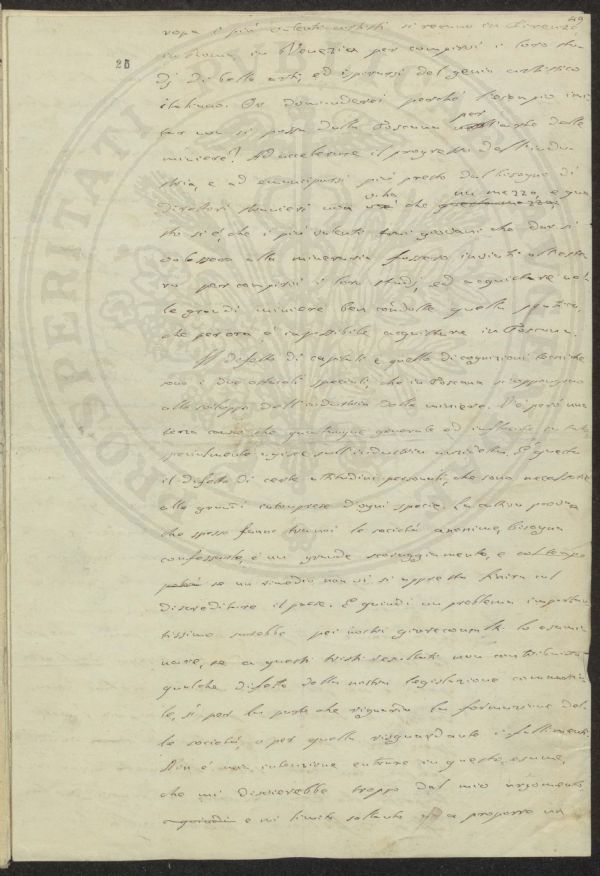 49
25
ropa i più valenti artisti si recano in Firenze
in Roma, in Venezia per compirvi i loro stu
dj di belle arti, ed ispirarsi del genio artistico
italiano. Or domanderei perchè l'esempio imi
tar non si possa dalla Toscana per l'arte delle
miniere? Ad accelerare il progresso dell'indu
stria, e ad emanciparsi più presto dal bisogno di
direttori stranieri una via che un mezzo, e que
sto si è, che i più valenti giovani che dar si
volessero alla mineraria fossero inviati all'este
ro per compirvi i loro studj, ed acquistare nel
le grandi miniere ben condotte quella pratica,
che per ora è impossibile acquistare in Toscana.
Il difetto di capitali e quello di cognizioni tecniche
sono i due ostacoli speciali, che in Toscana si oppongono
allo sviluppo dell'industria delle miniere. V'è però una
terza causa che quantunque generale ed
specialmente agisce sull'industria E questa
il difetto di certe attitudini personali, che sono necessarie
alle grandi intraprese d'ogni specie. La cattiva prova
che spesso fanno tra noi le società anonime, bisogna
confessarlo, è un grande scoraggiamento, e col tempo
se un rimedio non vi si appresta finirà col
discreditare il paese. E quindi un problema importan
tissimo sarebbe pei nostri giureconsulti lo esami
nare, se a questi tristi resultati non contribuisca
qualche difetto della nostra legislazione commercia
le, sì per la parte che riguarda la formazione del
le società, o per quella risguardante i fallimenti.
Non è mia intenzione entrare in questo esame,
che mi disvierebbe troppo dal mio argomento
e mi limito soltanto a proporre un